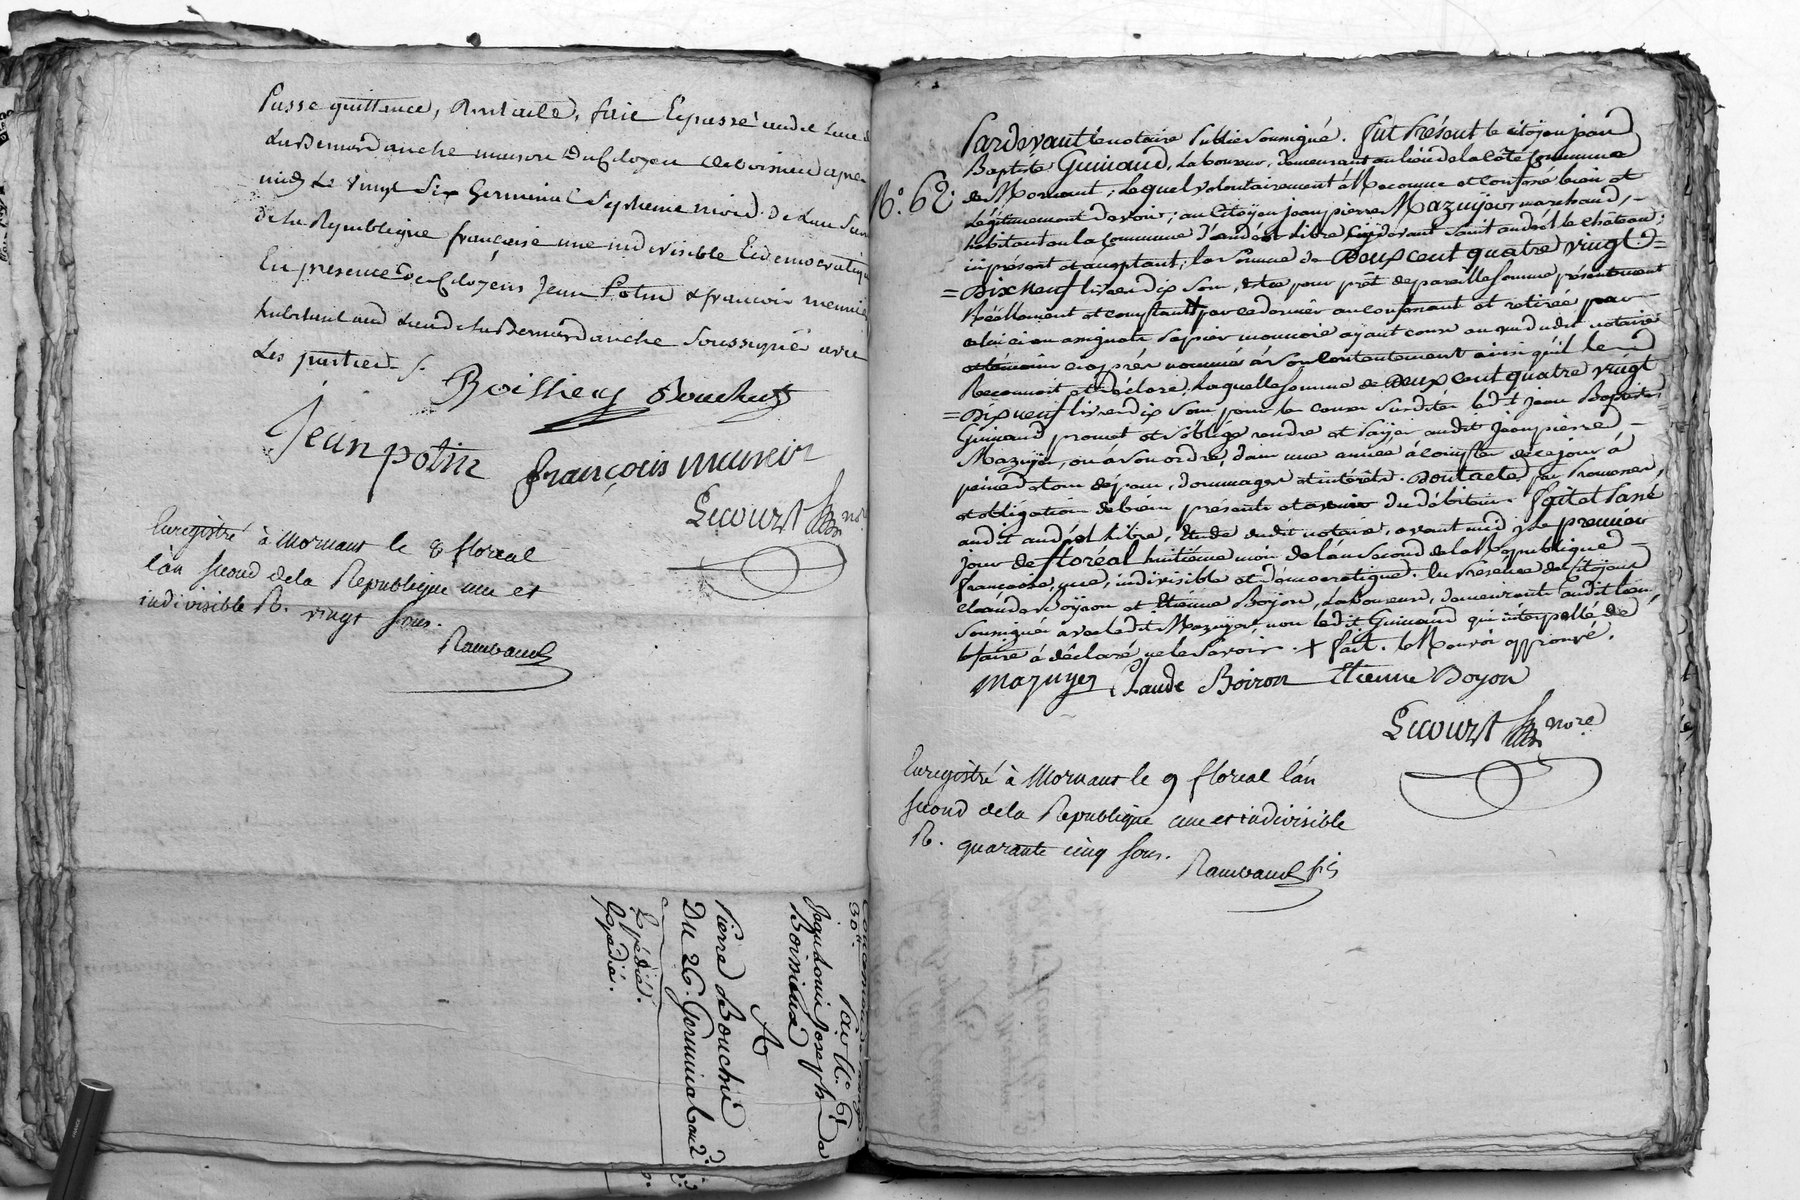 Passe quittance, Dont acte, fait & passé audit lieu de
La Bernardanche maison du Citoyen de Boissieu apres
midy Le vingt Six Germinal Septieme mois de L'an Second
de la Republique française une indivisible & democratique
En presence de Citoyens Jean Potin & françois meunier
habitant aud lieu de La Bernardanche Soussigné avec
Les parties ./.
Boissieu Bouchut
Jean potin françois muneir
Lecourt nore
Enregistré à Mornant le 8 floreal
l'an second de la Republique une et
indivisible R. vingt sous.
Rambaud
30tt Par N.° 61
Jaque Louis Joseph de
Boissieux
A
Pierre Bouchu
Du 26. Germinal l'an 2.e
Expédié.
Expédié.
N.° 62.
Pardevant le notaire Public soussigné. fut Présent le citoyen jean
Baptiste Guinand, Laboureur, demeurant au lieu de la Côte Commune
de Mornant; Lequel volontairement à Reconnu et Confessé bien et
Légitimement devoir; au Citoyen jean pierre Mazuyer marchand, —
habitant en la commune d'andéol Libre, cy devant Saint andéol le château
icy présent et acceptant; la somme de Deux cent quatre vingt =
= Dix neuf livres dix sous, & ce pour prêt de pareille somme présentement
Réellement et comptant + par ce dernier au confessant et retirée par —
celui ci en assignats papier monnoie ayant cours au vu dudit notaire
et témoins cy après nommés à son contentement ainsi qu'il le
Reconnoit et déclare, Laquelle somme de Deux cent quatre vingt
= Dix neuf livres dix sous pour les causes susdites ledit Jean Baptiste
Guinand promet et s'oblige rendre et payer audit Jean pierre —
Mazuyer, ou à son ordre, dans une année à compter de ce jour à
peine de tous dépens, dommages et intérêts. Dont acte, par Promesses,
et obligation de biens présents et avenir du débiteur. Fait et Passé
audit andéol Libre, Etude dudit notaire, avant midy Le premier
jour de floréal huitième mois de l'an Second de la République —
française, une, indivisible et démocratique. En Présence des Citoyens
Claude Boiron et Etienne Boyon, Laboureurs, demeurants audit lieu,
soussignés avec ledit Mazuyer non ledit Guinand qui interpellé de
le faire à déclaré ne le savoir. + fait. le Renvoi approuvé.
Mazuyer Claude Boiron Etienne Boyon
Lecourt nore
Enregistré à Mornant le 9 floreal l'an
second de la Republique une et indivisible
R. quarante cinq sous.
Rambaud fils